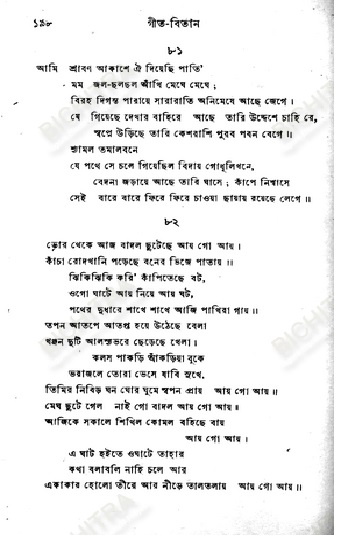 ১৯৮ গীত-বিতান
৮১
আমি শ্রাবণ আকাশে ঐ দিয়েছি পাতি'
মম জল-ছলছল আঁখি মেঘে মেঘে;
বিরহ দিগন্ত পারায়ে সারারাতি অনিমেষে আছে জেগে।
যে গিয়েছে দেখার বাহিরে আছে তারি উদ্দেশে চাহি রে,
স্বপ্নে উড়িছে তারি কেশরাশি পুরব পবন বেগে॥
শ্যামল তমালবনে
যে পথে সে চলে গিয়েছিল বিদায় গোধূলিখনে,
বেদনা জড়ায়ে আছে তারি ঘাসে; কাঁপে নিশ্বাসে
সেই বারে বারে ফিরে ফিরে চাওয়া ছায়ায় রয়েছে লেগে॥
৮২
ভোর থেকে আজ বাদল ছুটেছে আয় গো আয়।
কাঁচা রোদখানি পড়েছে বনের ভিজে পাতায়॥
ঝিকিঝিকি করি' কাঁপিতেছে বট,
ওগো ঘাটে আয় নিয়ে আয় ঘট,
পথের দুধারে শাখে শাখে আজি পাখিরা গায়॥
তপন আতপে আতপ্ত হয়ে উঠেছে বেলা
খঞ্জন দুটি আলস্যভরে ছেড়েছে খেলা।
কলস পাকড়ি আঁকড়িয়া বুকে
ভরাজলে তোরা ভেসে যাবি সুখে,
তিমির নিবিড় ঘন ঘোর ঘুমে স্বপন প্রায় আয় গো আয়॥
মেঘ ছুটে গেল নাই গো বাদল আয় গো আয়॥
আজিকে সকালে শিথিল কোমল বহিছে বায়
আয় গো আয়।
এ ঘাট হইতে ওঘাটে তাহার
কথা বলাবলি নাহি চলে আর
একাকার হোলো তীরে আর নীরে তালতলায় আয় গো আয়॥
BICHITRA